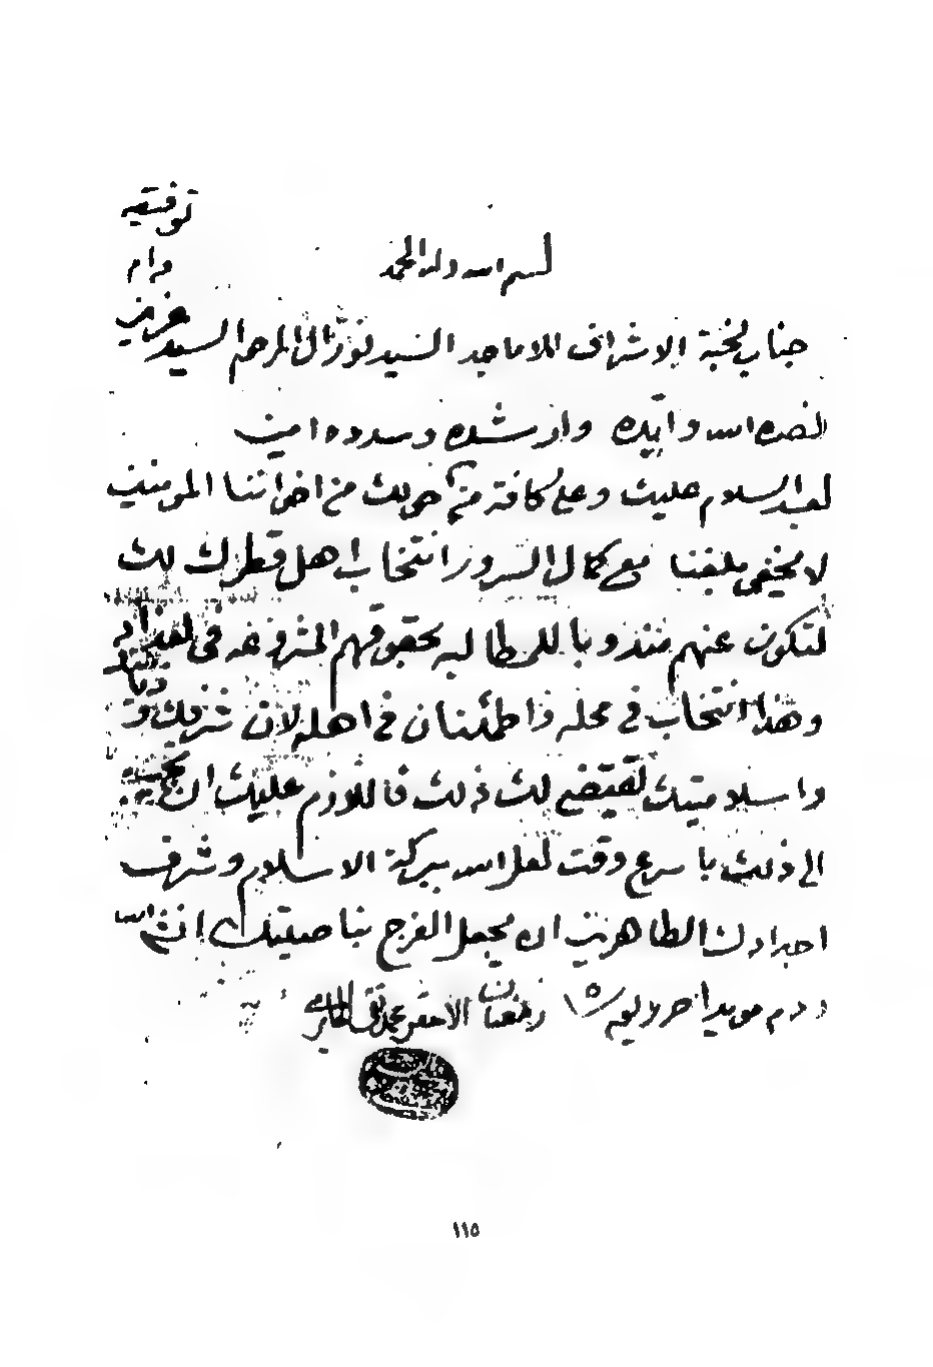 بسم الله وله الحمد
جناب نخبة الاشراف الاماجد السيد نور آل المرحوم السيد عزيز دام توفيقه
نصره الله وايده وارشده وسدده امين
بعد السلام عليك وعلى كافة من حولك من اخواننا المومنين
لا يخفى بلغنا مع كمال السرور انتخاب اهل قطرك لك
لتكون عنهم مندوبا للمطالبه بحقوقهم المشروعه في بغداد
وهذا انتخاب في محله واطمئنان في اهله لان شرفك و
واسلاميتك تقتضي لك ذلك فاللازم عليك ان تجيب
الى ذلك باسرع وقت لعل الله ببركة الاسلام وشرف
اجدادك الطاهرين ان يجعل الفرج بناصيتك انشاء الله
ودم مويدا ١٥ رمضان الاحقر محمد تقي الحايري
١١٥